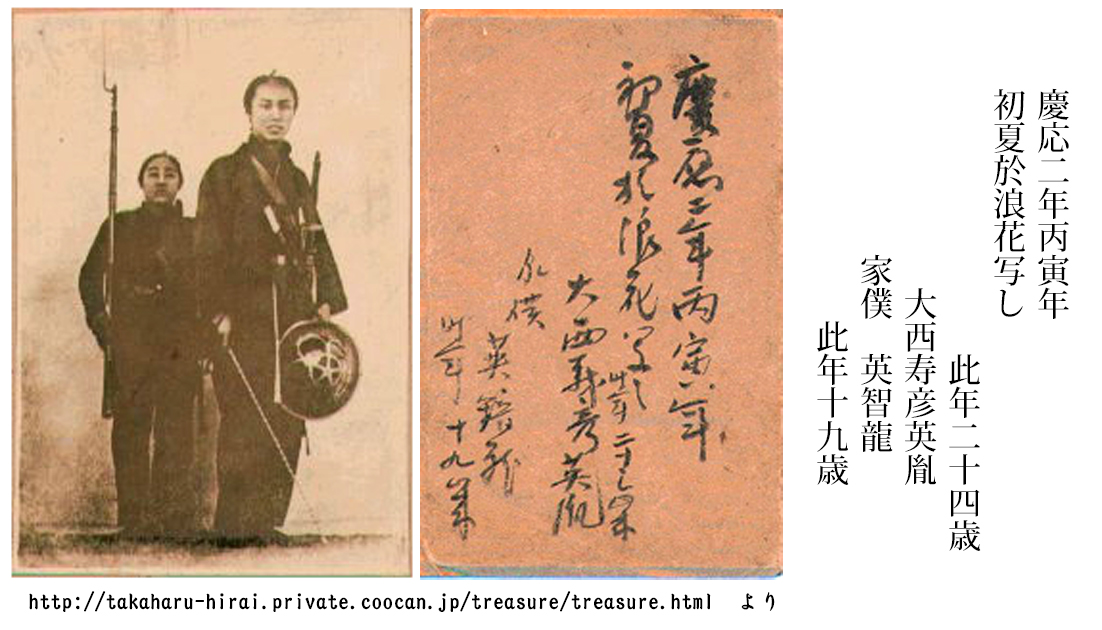 慶応二年丙寅年
初夏於浪花写し
此年二十四歳
大西寿彦英胤
家僕　英智龍
此年十九歳
慶應二年丙寅年
初夏於浪花写し
此年二十四歳
大西寿彦英胤
家僕　英智龍
此年十九歳
http://takaharu-hirai.private.coocan.jp/treasure/treasure.html　より